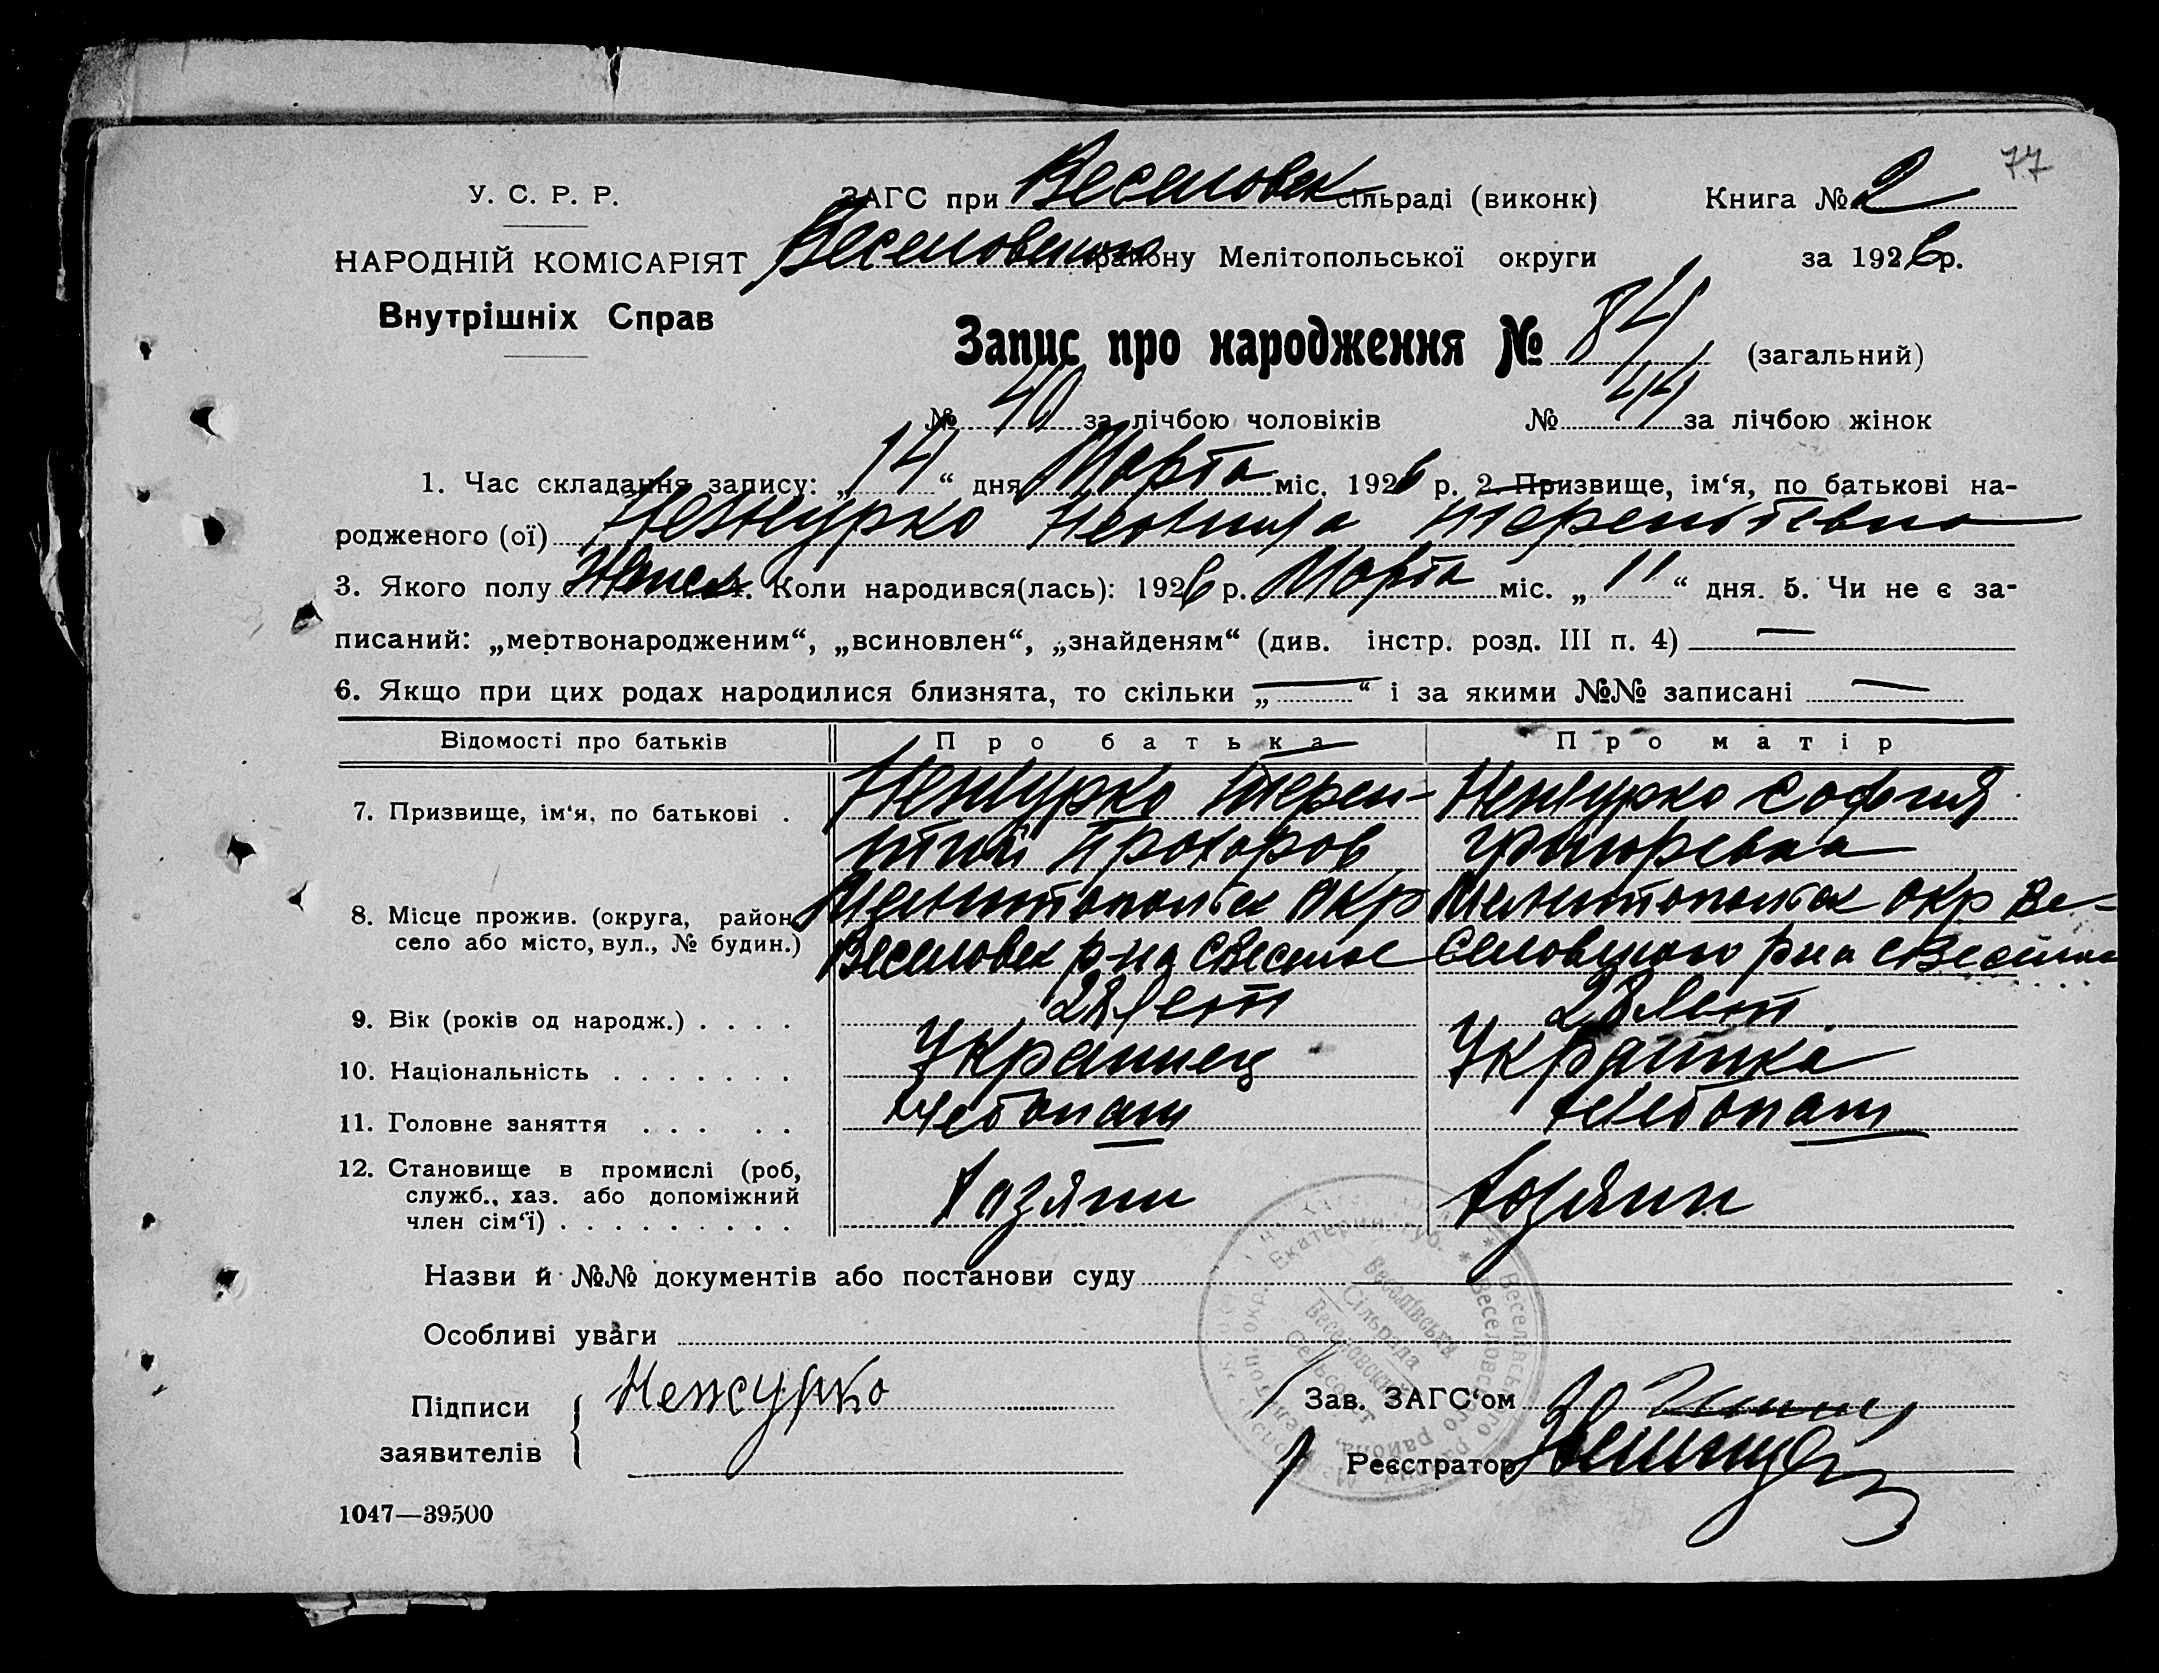 77
У. С. Р. Р.
ЗАГС при Веселовск сільраді (виконк) Книга № 2
НАРОДНІЙ КОМІСАРІЯТ Веселовского району Мелітопольської округи за 1926 р.
Внутрішніх Справ
Запис про народження № 84 (загальний)
№ 40 за лічбою чоловіків № 44 за лічбою жінок
1. Час складання запису: „14“ дня Марта міс. 1926 р. 2. Призвище, ім‘я, по батькові на-
родженого (ої) Ненжурко Неонила Терентевна
3. Якого полу Женск 4. Коли народився(лась): 1926 р. Марта міс. „11“ дня. 5. Чи не є за-
писаний: „мертвонародженим“, „всиновлен“, „знайденям“ (див. інстр. розд. III п. 4) —
6. Якщо при цих родах народилися близнята, то скільки „—“ і за якими №№ записані —
Відомості про батьків Про батька Про матір
7. Призвище, ім‘я, по батькові . Ненжурко Терен- Ненжурко София
тий Прохоров Григоревна
8. Місце прожив. (округа, район, Мелитопольск окр Мелитопольск окр Ве-
село або місто, вул., № будин.) Веселовск р-на с Веселое селовского р на с Веселое
9. Вік (років од народж.) . . . . 28 лет 28 лет
10. Національність . . . . . . . Украинец Украинка
11. Головне заняття . . . . . Хлебопаш Хлебопаш
12. Становище в промислі (роб,
служб., хаз. або допоміжний Хазяин Хозяин
член сім‘ї) . . . . . . . . .
Назви й №№ документів або постанови суду
Особливі уваги
Веселівська
Сільрада
Веселовский
Сельсовет
Підписи Ненжурко Зав. ЗАГС‘ом
заявителів Реєстратор
1047—39500